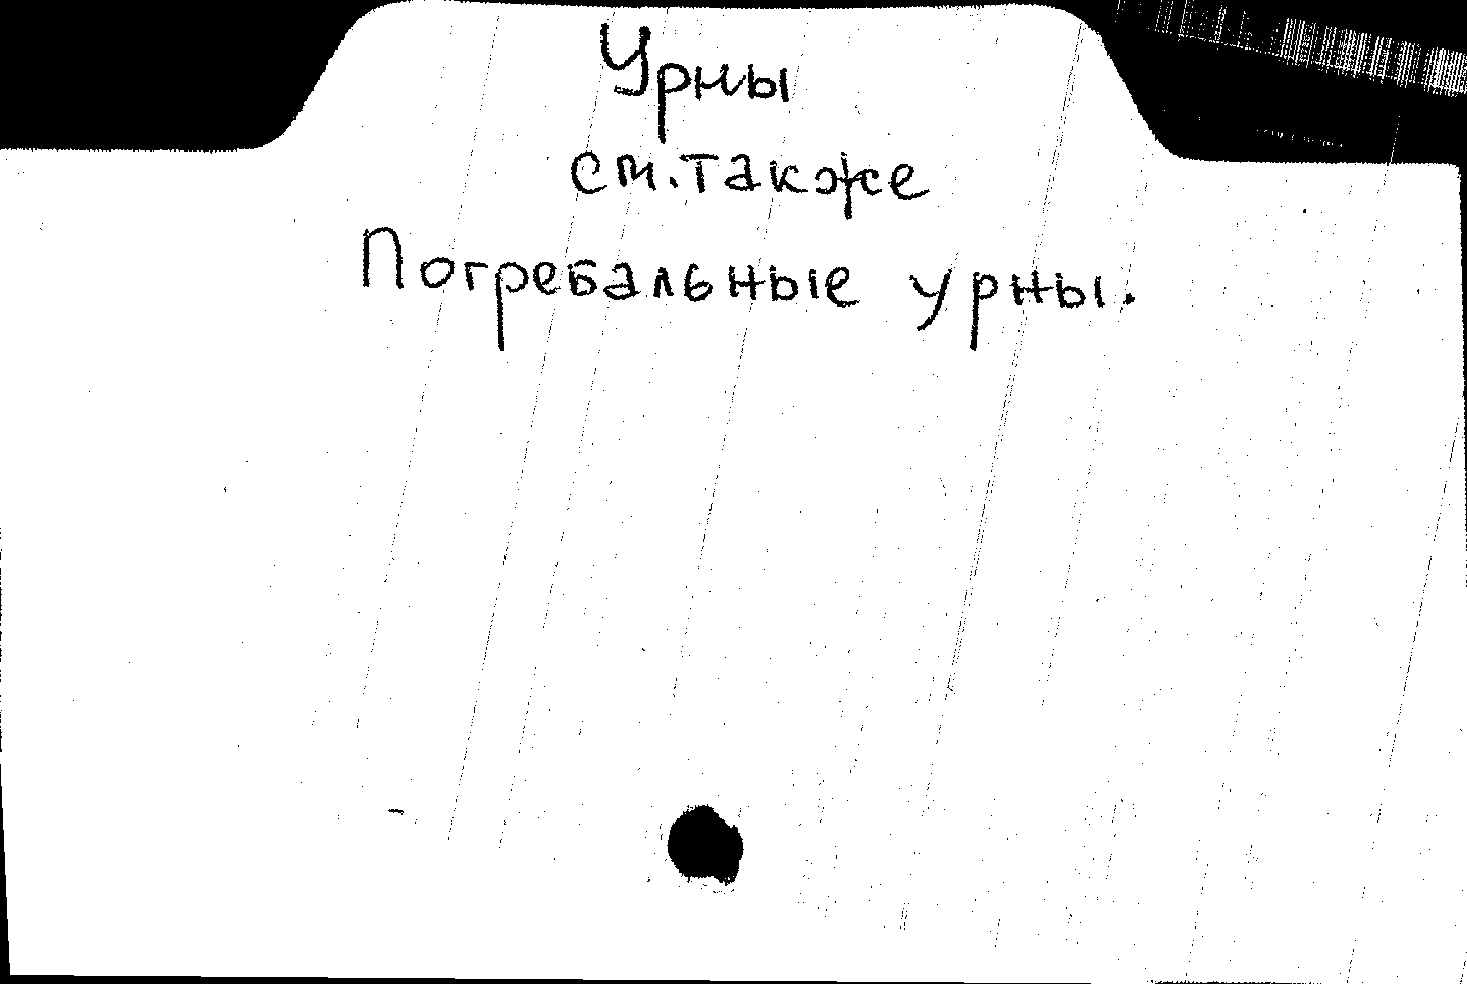 Урны
см. также
Погребальные урны.